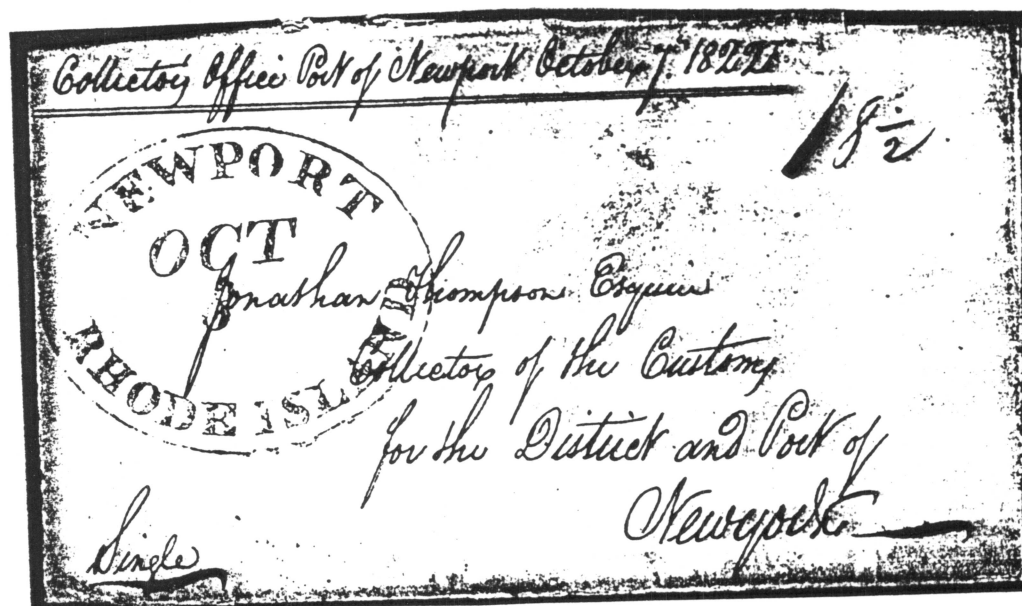 Collector's Office Port of Newport October 7th 1822
18½
NEWPORT
OCT
RHODE ISLAND
Jonathan Thompson Esquire
Collector of the Customs
for the District and Port of
Newyork
Single